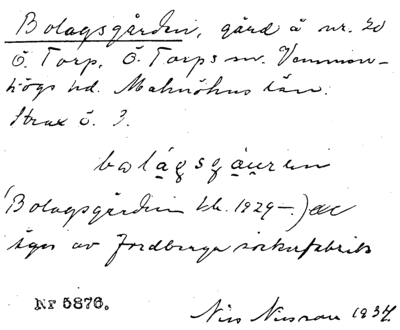 Bolagsgården, gård å nr. 20
Ö. Torp, Ö. Torps sn. Vemmen-
högs hd. Malmöhus län.
Strax ö. 3.
bolágsgáurin
(Bolagsgården bl. 1929–)
äges av Jordberga sockerfabrik
Nr 5876.
Nils Nilsson 1937